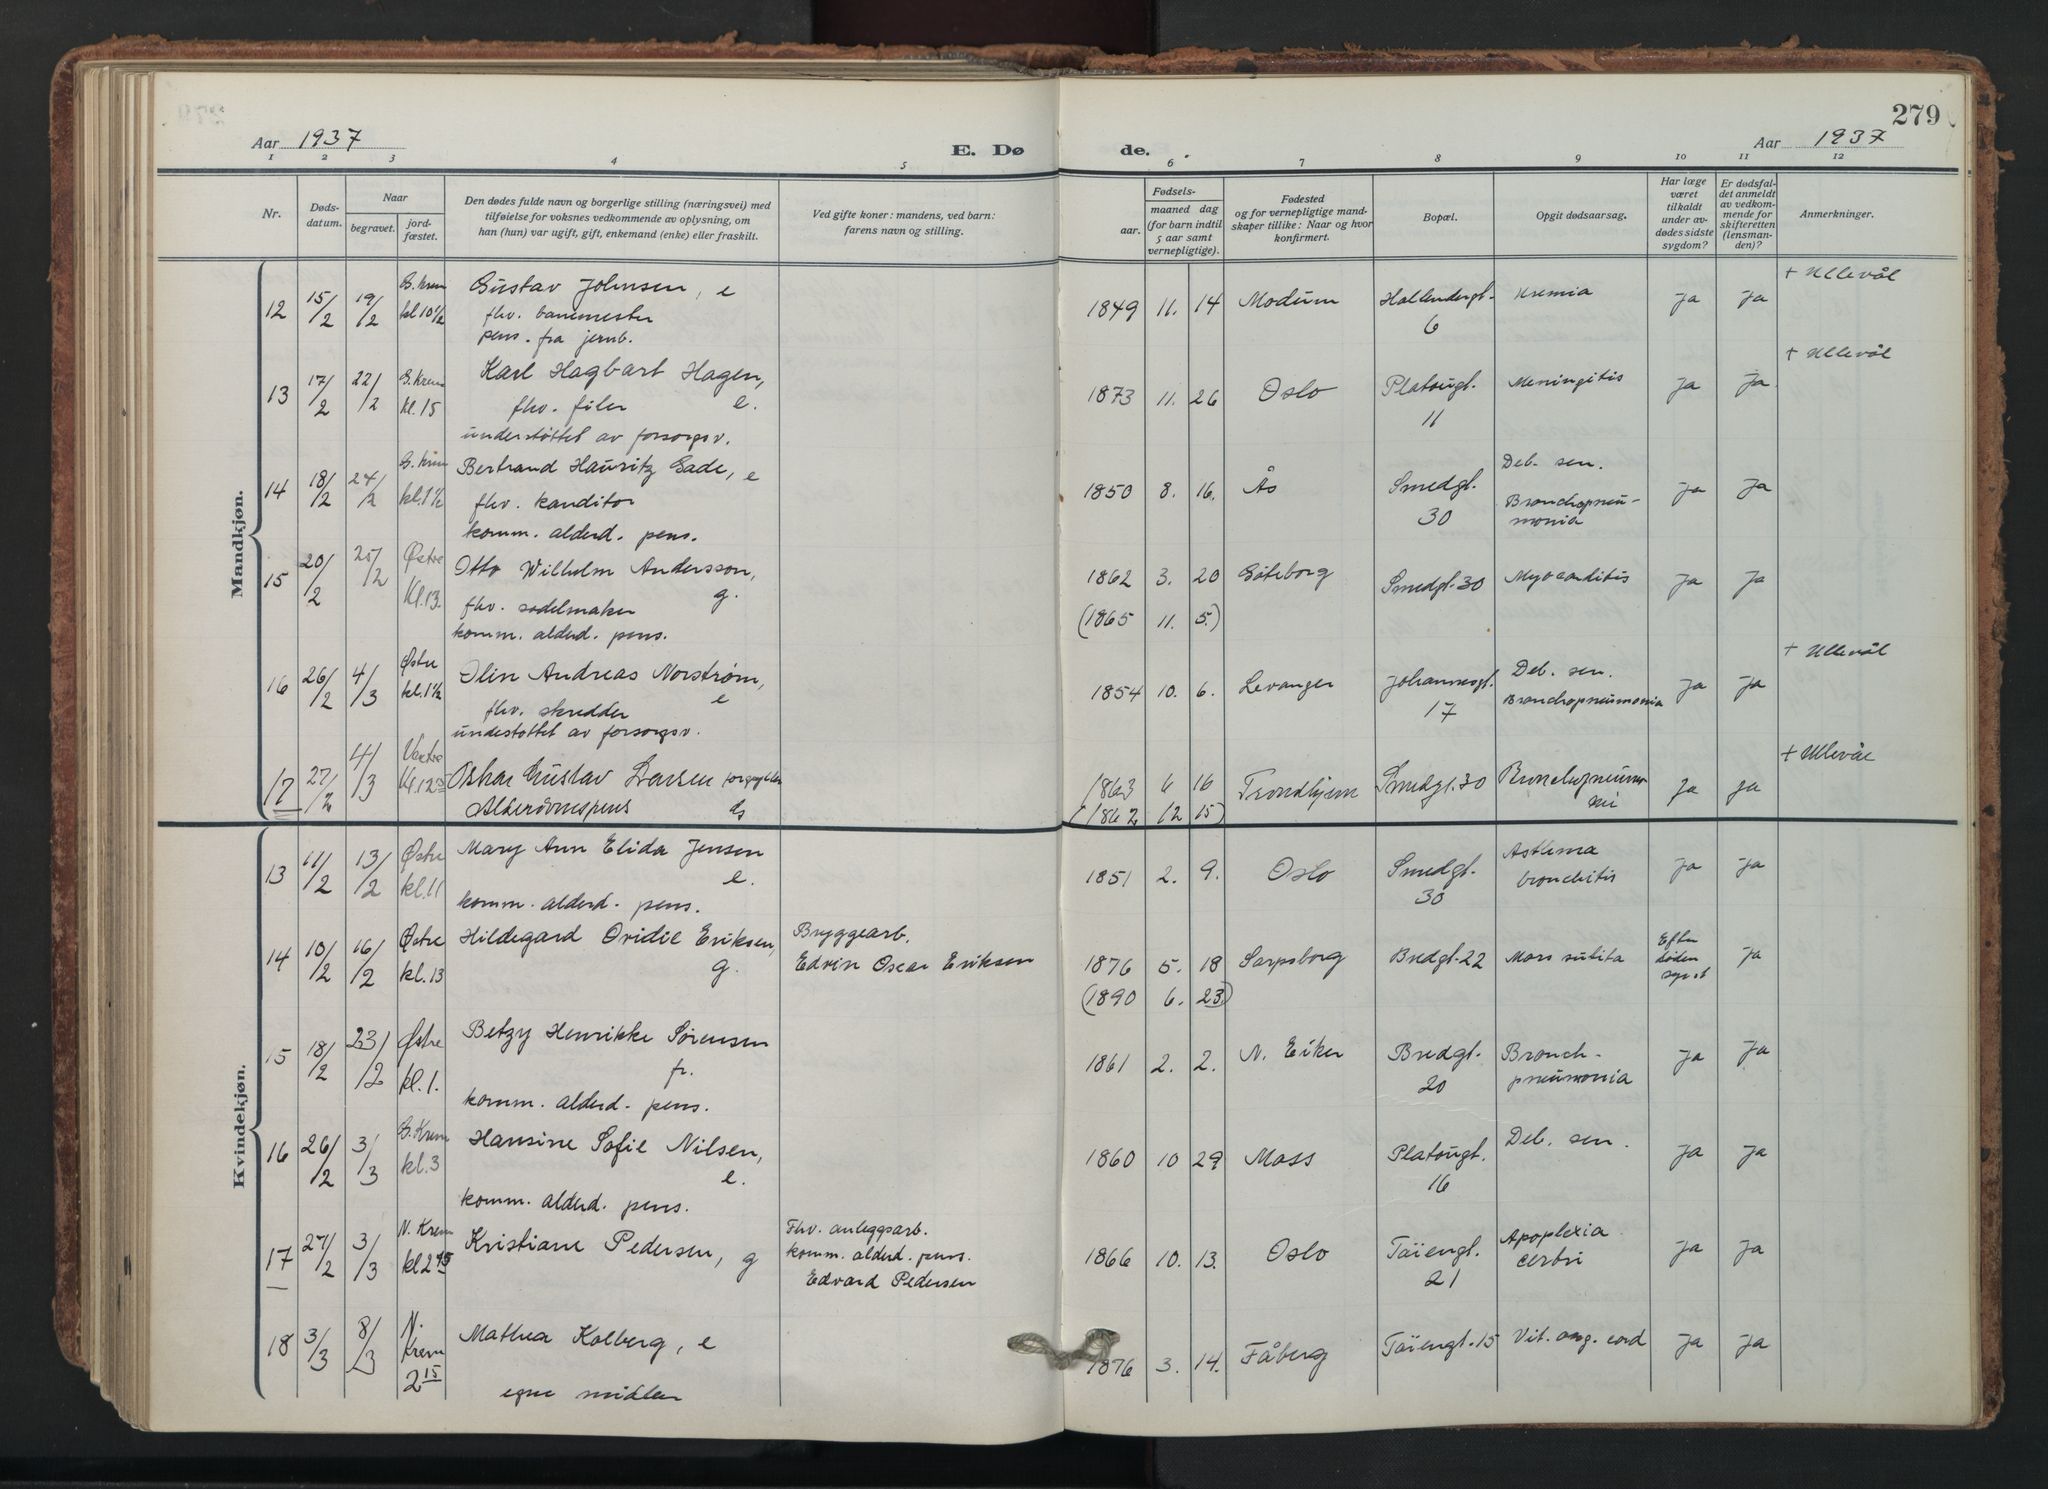 279
Aar 1937
E. Dø
de.
Aar 1937
1 2 3 4 5 6 7 8 9 10 11 12
Nr.
Dødsdatum.
Naar
begravet.
jordfæstet.
Den dødes fulde navn og borgerlige stilling (næringsvei) med
tilføielse for voksnes vedkommende av oplysning, om
han (hun) var ugift, gift, enkemand (enke) eller fraskilt.
Ved gifte koner: mandens, ved barn:
farens navn og stilling.
Fødsels-
aar.
maaned dag
(for barn indtil
5 aar samt
vernepligtige).
Fødested
og for vernepligtige mandskaper tillike: Naar og hvor
konfirmert.
Bopæl.
Opgit dødsaarsag.
Har læge
været
tilkaldt
under avdødes sidste
sygdom?
Er dødsfaldet anmeldt
av vedkommende for
skifteretten
(lensmanden)?
Anmerkninger.
Mandkjøn.
12 15/2 19/2 G. Krem kl 10 1/2 Gustav Johnsen, e 1849 11. 14 Modum Hallendergt. 6 Uremia ja ja + Ullevål
fhv. banemester
pens. fra jernb.
13 17/2 22/2 G. Krem kl. 15 Karl Hagbart Hagen, e. 1873 11. 26 Oslo Platougt. 11 Meningitis ja ja + Ullevål
fhv. filer
understøttet av forsorgsv.
14 18/2 24/2 G. Krem kl. 1 1/2 Bertrand Hauritz Gade, e 1850 8. 16. Ås Smedgt. 30 Deb. sen. Bronchopneumonia ja ja
fhv. kanditor
komm. alderd. pens.
15 20/2 25/2 Østre Kl. 13. Otto Wilhelm Andersson, g. 1862 3. 20 Gøteborg Smedgt. 30 Myocarditis ja ja
fhv. sadelmaker (1865 11. 5.)
komm. alderd. pens.
16 26/2 4/3 Østre kl. 1 1/2 Olin Andreas Norstrøm, e 1854 10. 6. Levanger Johannesgt. 17 Deb. sen. Bronchopneumonia ja ja + Ullevål
fhv. skredder
undestøttet av forsorgsv.
17 27/2 4/3 Vestre Kl. 12 Oskar Gustav Larsen 1863 6 16 Trondhjem Smedgt. 30 ja ja + Ullevål
(1862 12 15)
Kvindekjøn.
13 11/2 13/2 Østre kl. 11 Mary Ann Elida Jensen e. 1851 2. 9. Oslo Smedgt. 30 Asthma bronchitis ja ja
komm. alderd. pens.
14 10/2 16/2 Østre kl. 13 Hildegard Ovidie Eriksen, g. Bryggearb. Edvin Oscar Eriksen 1876 5. 18 Sarpsborg Bredgt. 22 Mors subita Efter døden synet ja
(1890 6. 23.)
15 18/2 23/2 Østre kl. 1. Betzy Henrikke Sørensen fr. 1861 2. 2. N. Eiker Bredgt. 20 Bronchpneumonia ja ja
komm. alderd. pens.
16 26/2 3/3 G. Krem kl. 3 Hansine Sofie Nilsen, e. 1860 10 29 Moss Platougt. 16 Deb. sen. ja ja
komm. alderd. pens.
17 27/2 3/3 N. Krem kl 2 45 Kristiane Pedersen, g Fhv. anleggsarb. komm. alderd. pens. Edvard Pedersen 1866 10. 13. Oslo Tøiengt. 21 Apoplexia cerbri ja ja
18 3/3 8/3 N. Krem 2 15 Mathea Kolberg, e 1876 3. 14. Fåberg Tøiengt. 15 Vit. org. cord ja ja
egne midler